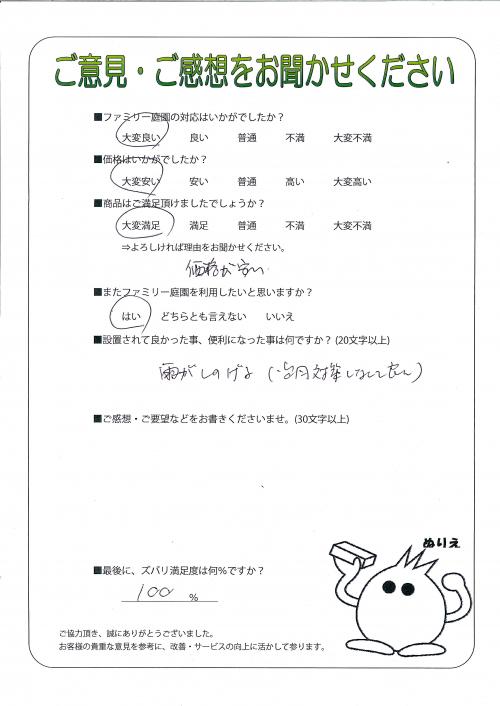 ご意見・ご感想をお聞かせください
■ファミリー庭園の対応はいかがでしたか？
大変良い 良い 普通 不満 大変不満
■価格はいかがでしたか？
大変安い 安い 普通 高い 大変高い
■商品はご満足頂けましたでしょうか？
大変満足 満足 普通 不満 大変不満
⇒よろしければ理由をお聞かせください。
価格が安い
■またファミリー庭園を利用したいと思いますか？
はい どちらとも言えない いいえ
■設置されて良かった事、便利になった事は何ですか？(20文字以上)
雨がしのげる
■ご感想・ご要望などをお書きくださいませ。(30文字以上)
ぬりえ
■最後に、ズバリ満足度は何%ですか？
100 %
ご協力頂き、誠にありがとうございました。
お客様の貴重な意見を参考に、改善・サービスの向上に活かして参ります。